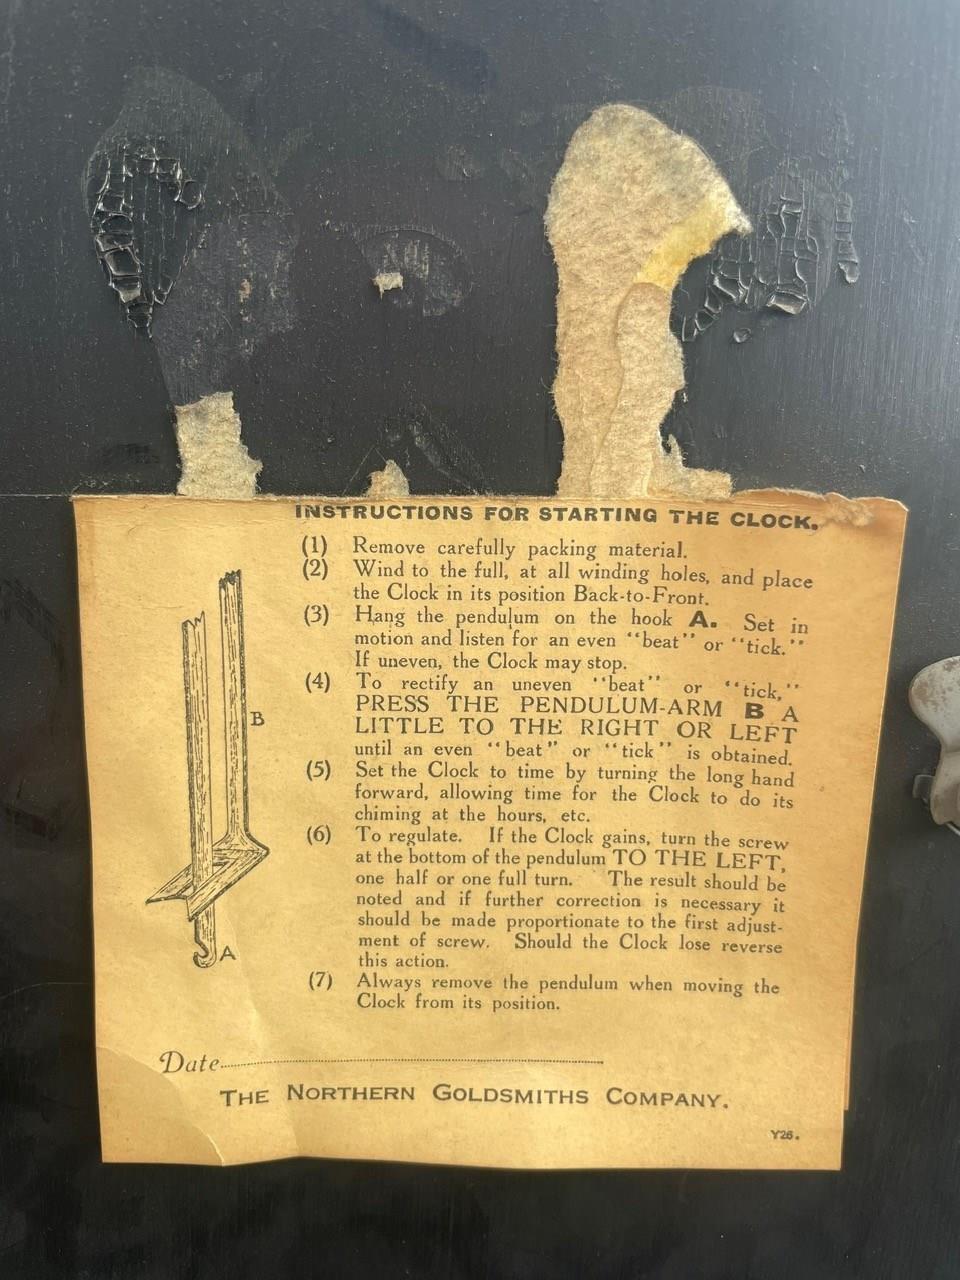 INSTRUCTIONS FOR STARTING THE CLOCK.
(1) Remove carefully packing material.
(2) Wind to the full, at all winding holes, and place
the Clock in its position Back-to-Front.
(3) Hang the pendulum on the hook A. Set in
motion and listen for an even "beat" or "tick."
If uneven, the Clock may stop.
(4) To rectify an uneven "beat" or "tick,"
PRESS THE PENDULUM-ARM B A
LITTLE TO THE RIGHT OR LEFT
until an even "beat" or "tick" is obtained.
(5) Set the Clock to time by turning the long hand
forward, allowing time for the Clock to do its
chiming at the hours, etc.
(6) To regulate. If the Clock gains, turn the screw
at the bottom of the pendulum TO THE LEFT,
one half or one full turn. The result should be
noted and if further correction is necessary it
should be made proportionate to the first adjust-
ment of screw. Should the Clock lose reverse
this action.
(7) Always remove the pendulum when moving the
Clock from its position.
B
A
Date
THE NORTHERN GOLDSMITHS COMPANY.
Y26.